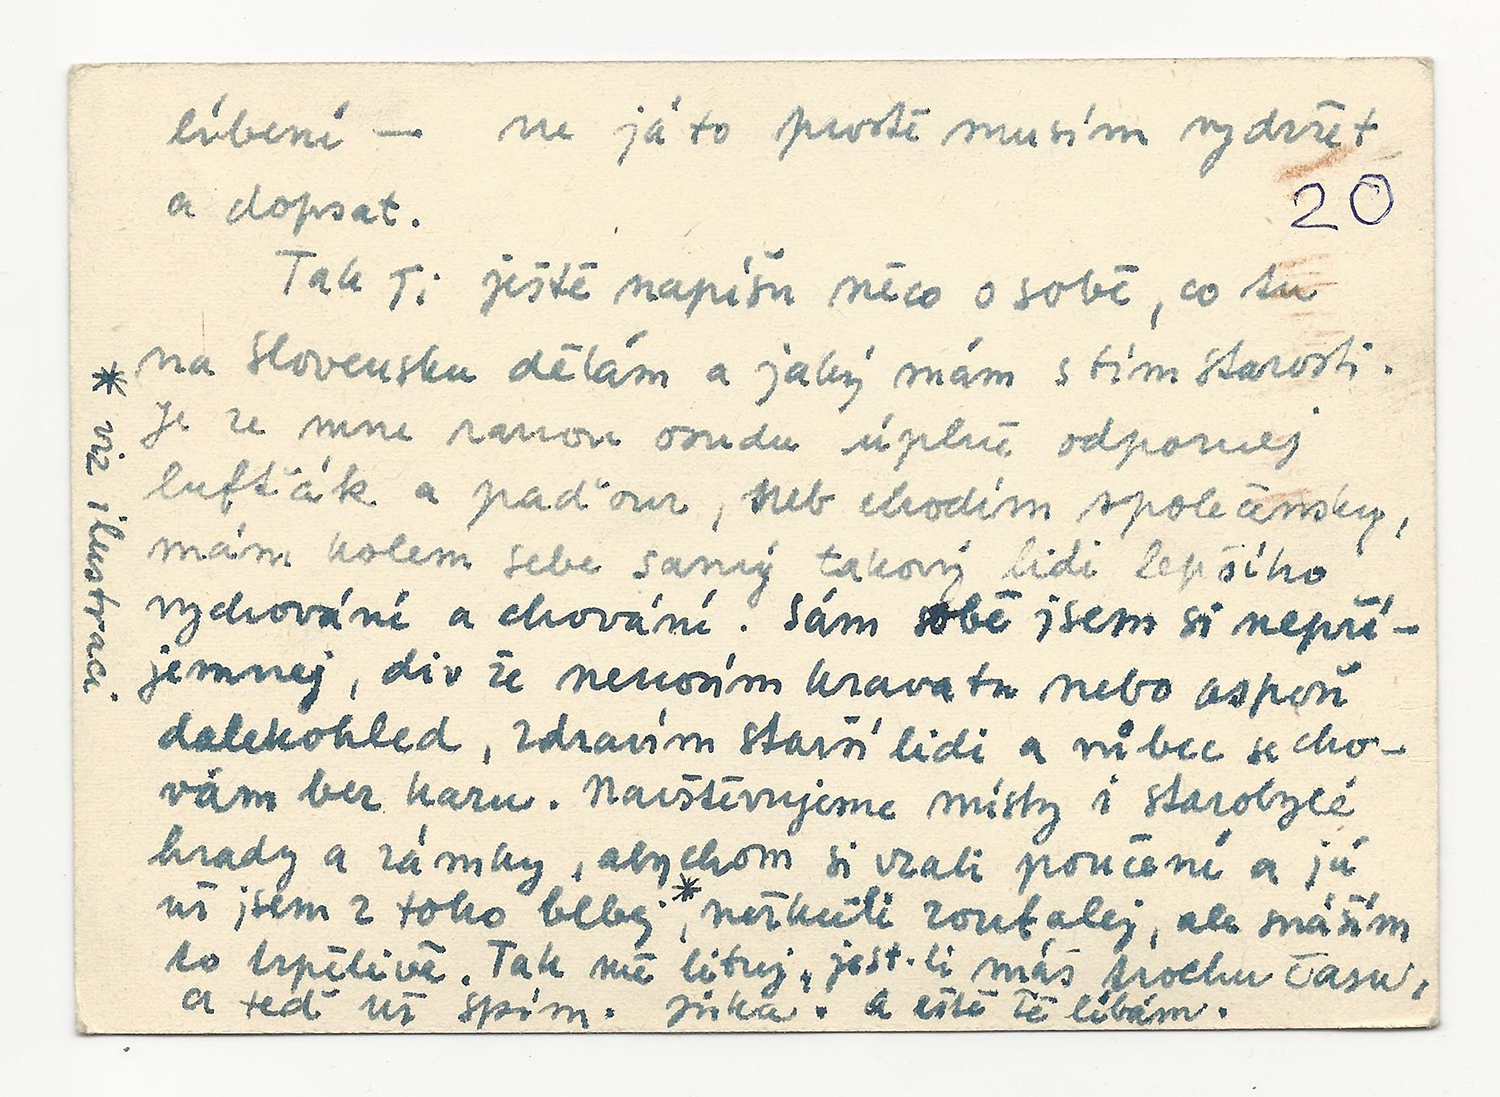 líbení — ne já to prostě musím vydržet
a dopsat.
20
Tak Ti ještě napíšu něco o sobě, co tu
na Slovensku dělám a jaký mám s tím starosti.
Je ze mne ranou osudu úplně odpornej
lufťák a paďour, neb chodím společensky,
mám kolem sebe samý takový lidi lepšího
vychování a chování. Sám sobě jsem si nepří-
jemnej, div že nenosím kravatu nebo aspoň
dalekohled, zdravím starší lidi a vůbec se cho-
vám bez kazu. Navštěvujeme místy i starobylé
hrady a zámky, abychom si vzali poučení a já
už jsem z toho blbej*, neřkuli zoufalej, ale snáším
to trpělivě. Tak mě lituj, jest-li máš trochu času,
a teď už spím. Jirka. A eště Tě líbám.
* viz ilustraci.